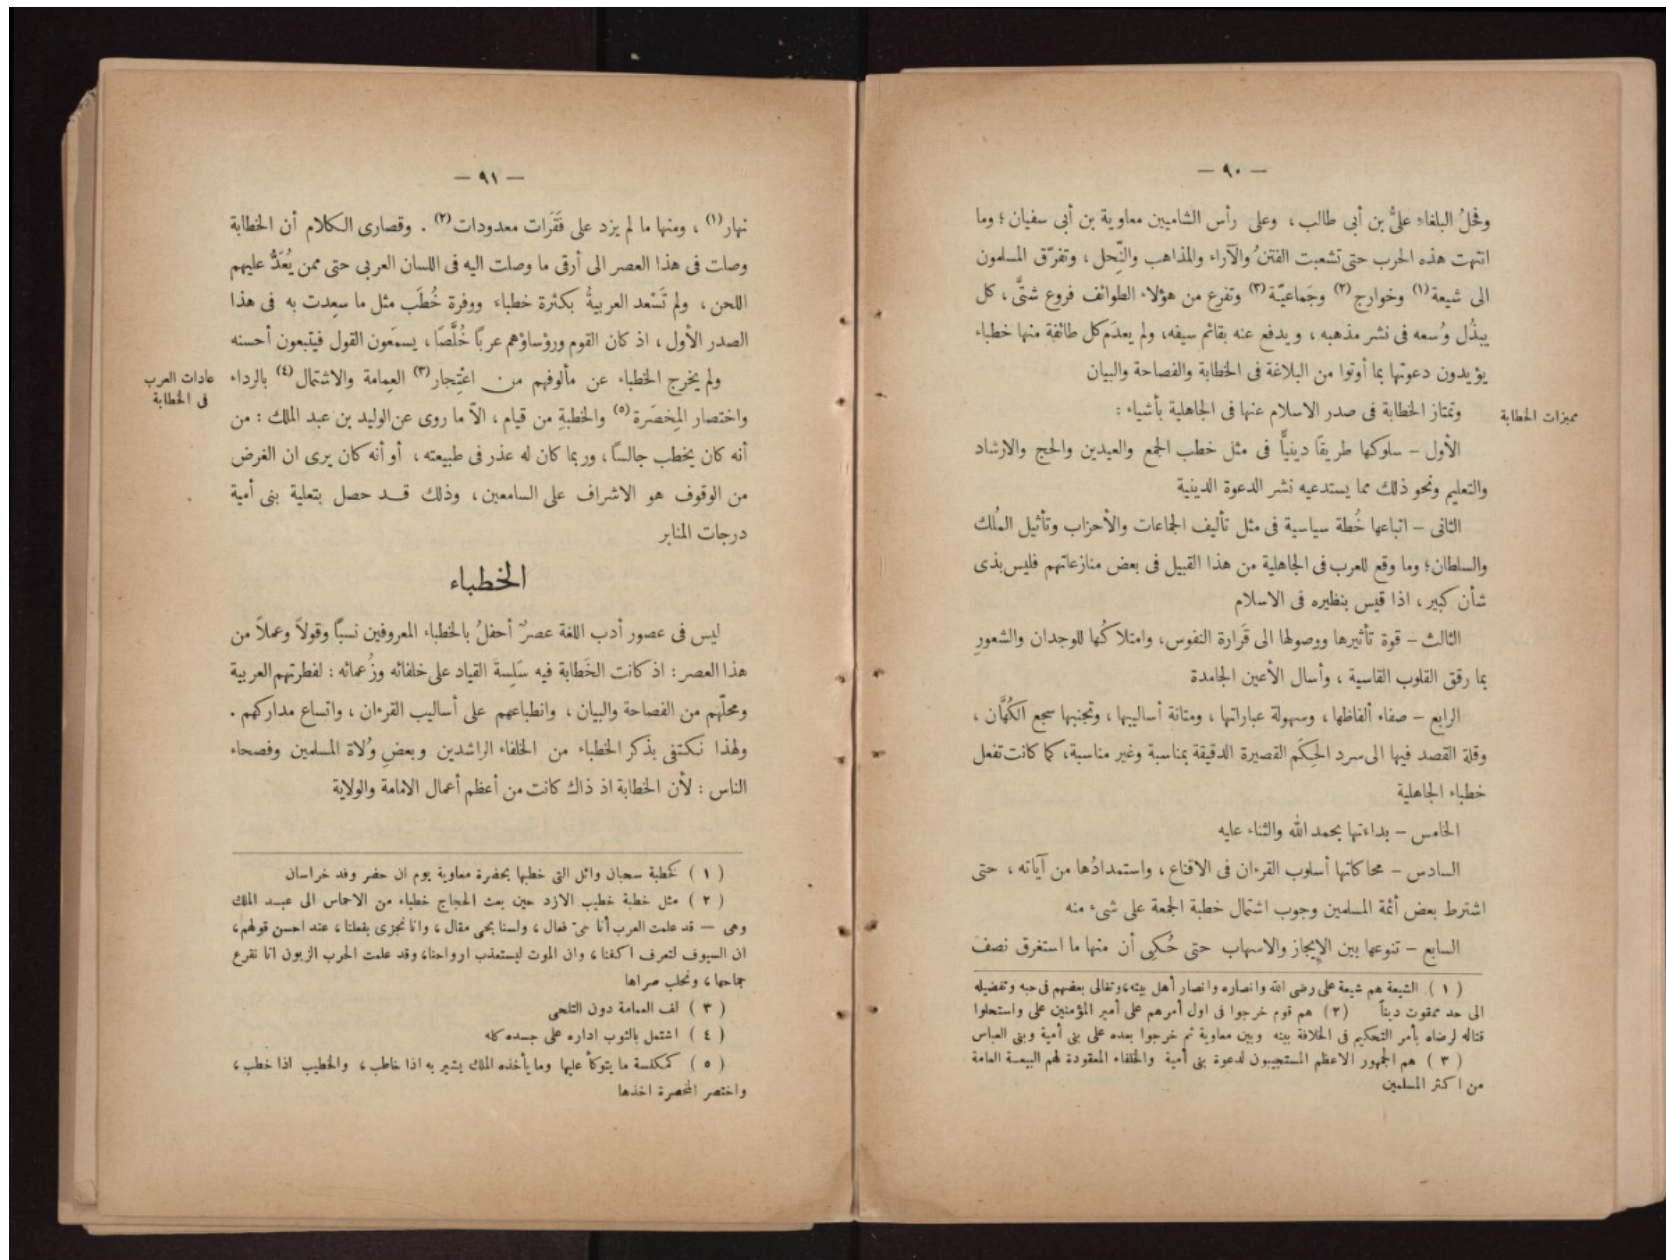 — ٩٠ —
وفحلُ البلغاء علىُّ بن أبى طالب ، وعلى رأس الشاميين معاوية بن أبى سفيان ؛ وما
انتهت هذه الحرب حتى تشعبت الفتنُ والآراء والمذاهب والنِّحل ، وتفرّق المسلمون
الى شيعة (١) وخوارج (٢) وجَماعيّة (٣) وتفرع من هؤلاء الطوائف فروع شتَّى ، كل
يبذُل وُسعه فى نشر مذهبه ، ويدفع عنه بقائم سيفه، ولم يعدَم كل طائفة منها خطباء
يؤيدون دعوتها بما أوتوا من البلاغة فى الخطابة والفصاحة والبيان
مميزات الخطابة
وتمتاز الخطابة فى صدر الاسلام عنها فى الجاهلية بأشياء :
الأول – سلوكها طريقًا دينيًّا فى مثل خطب الجمع والعيدين والحج والارشاد
والتعليم ونحو ذلك مما يستدعيه نشر الدعوة الدينية
الثانى – اتباعها خُطة سياسية فى مثل تأليف الجماعات والأحزاب وتأثيل المُلك
والسلطان؛ وما وقع للعرب فى الجاهلية من هذا القبيل فى بعض منازعاتهم فليس بذى
شأن كبير ، اذا قيس بنظيره فى الاسلام
الثالث – قوة تأثيرها ووصولها الى قَرارة النفوس، وامتلاكُها للوجدان والشعورِ
بما رقق القلوب القاسية ، وأسال الأعين الجامدة
الرابع – صفاء ألفاظها ، وسهولة عباراتها ، ومتانة أساليبها ، وتجنبها سجع الكُهَّان ،
وقلة القصد فيها الى سرد الحِكَم القصيرة الدقيقة بمناسبة وغير مناسبة، كما كانت تفعل
خطباء الجاهلية
الخامس – بداءتها بحمد الله والثناء عليه
السادس – محاكاتها أسلوب القرءان فى الاقناع ، واستمدادُها من آياته ، حتى
اشترط بعض أئمة المسلمين وجوب اشتمال خطبة الجمعة على شىء منه
السابع – تنوعها بين الإيجاز والاسهاب حتى حُكِى أن منها ما استغرق نصفَ
( ١ ) الشيعة هم شيعة على رضى الله وانصاره وانصار أهل بيته،وتغالى بعضهم فى حبه وتفضيله
الى حد ممقوت ديناً ( ٢ ) هم قوم خرجوا فى اول أمرهم على أمير المؤمنين على واستحلوا
قتاله لرضاه بأمر التحكيم فى الخلافة بينه وبين معاوية ثم خرجوا بعده على بنى أمية وبنى العباس
( ٣ ) هم الجمهور الاعظم المستجيبون لدعوة بنى أمية والخلفاء المعقودة لهم البيعة العامة
من اكثر المسلمين
— ٩١ —
نهار (١) ، ومنها ما لم يزد على فَقَرات معدودات (٢) . وقصارى الكلام أن الخطابة
وصلت فى هذا العصر الى أرقى ما وصلت اليه فى اللسان العربى حتى ممن يُعَدُّ عليهم
اللحن ، ولم تَسْعد العربيةُ بكثرة خطباء ووفرة خُطَب مثل ما سعِدت به فى هذا
الصدر الأول ، اذ كان القوم ورؤساؤهم عربًا خُلَّصًا ، يسمَعون القول فيتبعون أحسنه
عادات العرب
فى الخطابة
ولم يخرج الخطباء عن مألوفهم من اعْتِجار (٣) العِمامة والاشتمال (٤) بالرداء
واختصار المِخصَرة (٥) والخطبةِ من قيام ، الاّ ما روى عن الوليد بن عبد الملك : من
أنه كان يخطب جالساً ، وربما كان له عذر فى طبيعته ، أو أنه كان يرى ان الغرض
من الوقوف هو الاشراف على السامعين ، وذلك قد حصل بتعلية بنى أمية
درجات المنابر
الخطباء
ليس فى عصور أدب اللغة عصرٌ أحفلُ بالخطباء المعروفين نسبًا وقولاً وعملاً من
هذا العصر : اذ كانت الخَطابة فيه سَلِسةَ القياد على خلفائه وزُعمائه : لفطرتهم العربية
ومحلّهم من الفصاحة والبيان ، وانطباعهم على أساليب القرءان ، واتساع مداركهم .
ولهذا نكتفى بذكر الخطباء من الخلفاء الراشدين وبعضِ وُلاة المسلمين وفصحاء
الناس : لأن الخطابة اذ ذاك كانت من أعظم أعمال الامامة والولاية
( ١ ) كخطبة سحبان وائل التى خطبها بحضرة معاوية يوم ان حضر وفد خراسان
( ٢ ) مثل خطبة خطيب الازد حين بعث الحجاج خطباء من الاحماس الى عبد الملك
وهى — قد علمت العرب أنا حىّ فعال ، ولسنا بحى مقال ، وانا نجزى بفعلنا ، عند احسن قولهم،
ان السيوف لتعرف اكفنا ، وان الموت ليستعذب ارواحنا، وقد علمت الحرب الزبون انا نقرع
جماحها ، ونحلب صراها
( ٣ ) لف العمامة دون التلحى
( ٤ ) اشتمل بالثوب اداره على جسده كله
( ٥ ) كمكنسة ما يتوكأ عليها وما يأخذه الملك يشير به اذا خاطب ، والخطيب اذا خطب ،
واختصر المخصرة اخذها